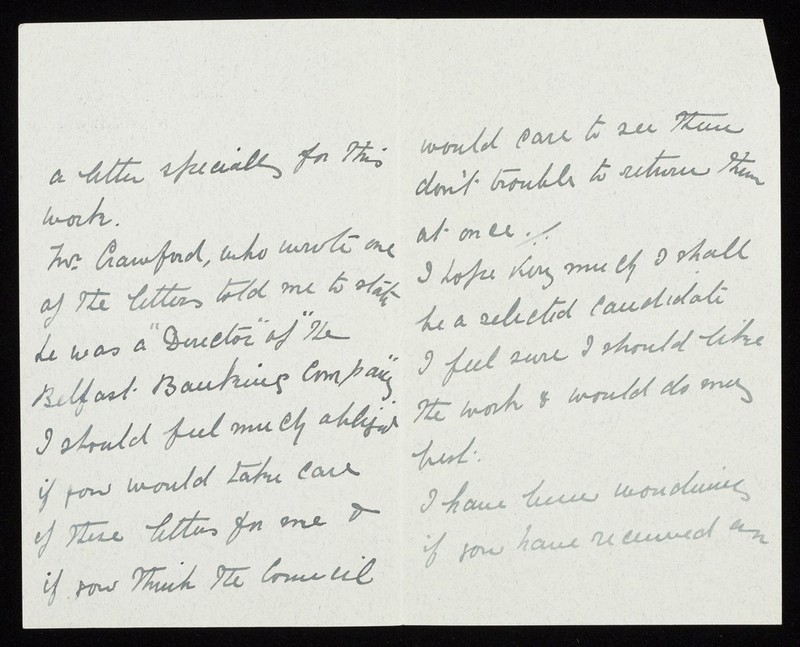 a letter specially for this
work.
Mr. Crawford, who wrote one
of the letters told me to state
he was a "Director" of "The
Belfast Banking Company"
I should feel much obliged
if you would take care
of these letters for me &
if you think the Council
would care to see them
don't trouble to return them
at once.
I hope very much I shall
be a selected candidate
I feel sure I should like
the work & would do my
best.
I have been wondering
if you have received an